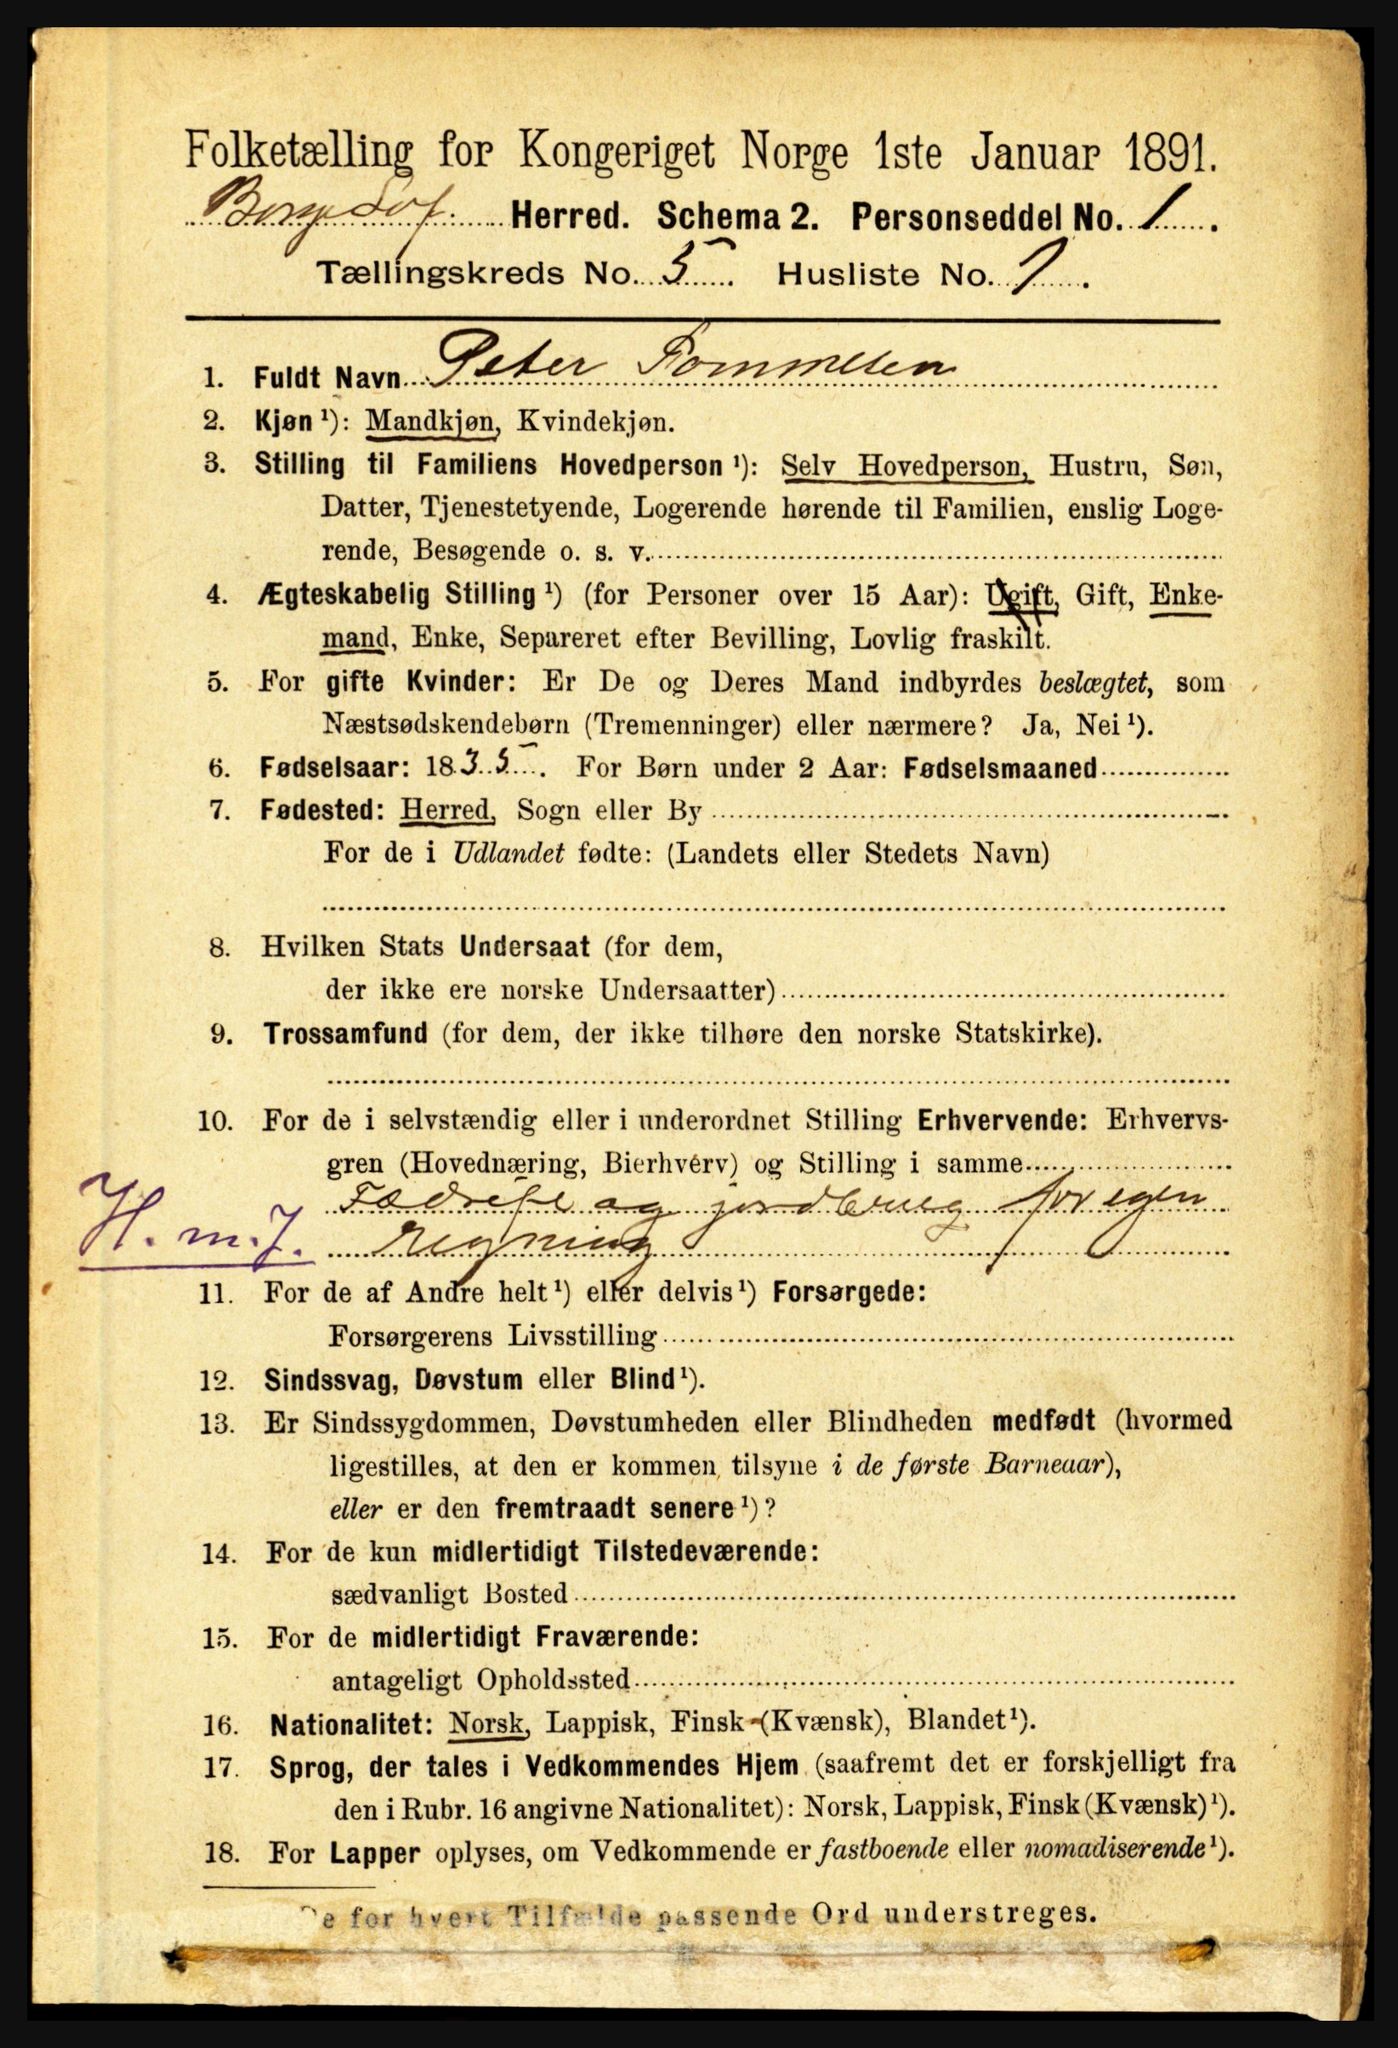 Folketælling for Kongeriget Norge 1ste Januar 1891.
Borge Lof. Herred. Schema 2. Personseddel No. 1.
Tællingskreds No. 5. Husliste No. 7.
1. Fuldt Navn Peter Tommesen
2. Kjøn ¹): Mandkjøn, Kvindekjøn.
3. Stilling til Familiens Hovedperson ¹): Selv Hovedperson, Hustru, Søn,
Datter, Tjenestetyende, Logerende hørende til Familien, enslig Loge-
rende, Besøgende o. s. v.
4. Ægteskabelig Stilling ¹) (for Personer over 15 Aar): Ugift, Gift, Enke-
mand, Enke, Separeret efter Bevilling, Lovlig fraskilt.
5. For gifte Kvinder: Er De og Deres Mand indbyrdes beslægtet, som
Næstsødskendebørn (Tremenninger) eller nærmere? Ja, Nei ¹).
6. Fødselsaar: 1835. For Børn under 2 Aar: Fødselsmaaned
7. Fødested: Herred, Sogn eller By
For de i Udlandet fødte: (Landets eller Stedets Navn)
8. Hvilken Stats Undersaat (for dem,
der ikke ere norske Undersaatter)
9. Trossamfund (for dem, der ikke tilhøre den norske Statskirke).
10. For de i selvstændig eller i underordnet Stilling Erhvervende: Erhvervs-
gren (Hovednæring, Bierhverv) og Stilling i samme
Fædrift og jordbrug for egen
H. m. J. regning
11. For de af Andre helt ¹) eller delvis ¹) Forsørgede:
Forsørgerens Livsstilling
12. Sindssvag, Døvstum eller Blind ¹).
13. Er Sindssygdommen, Døvstumheden eller Blindheden medfødt (hvormed
ligestilles, at den er kommen tilsyne i de første Barneaar),
eller er den fremtraadt senere ¹)?
14. For de kun midlertidigt Tilstedeværende:
sædvanligt Bosted
15. For de midlertidigt Fraværende:
antageligt Opholdssted
16. Nationalitet: Norsk, Lappisk, Finsk (Kvænsk), Blandet ¹).
17. Sprog, der tales i Vedkommendes Hjem (saafremt det er forskjelligt fra
den i Rubr. 16 angivne Nationalitet): Norsk, Lappisk, Finsk (Kvænsk) ¹).
18. For Lapper oplyses, om Vedkommende er fastboende eller nomadiserende ¹).
De for hvert Tilfælde passende Ord understreges.